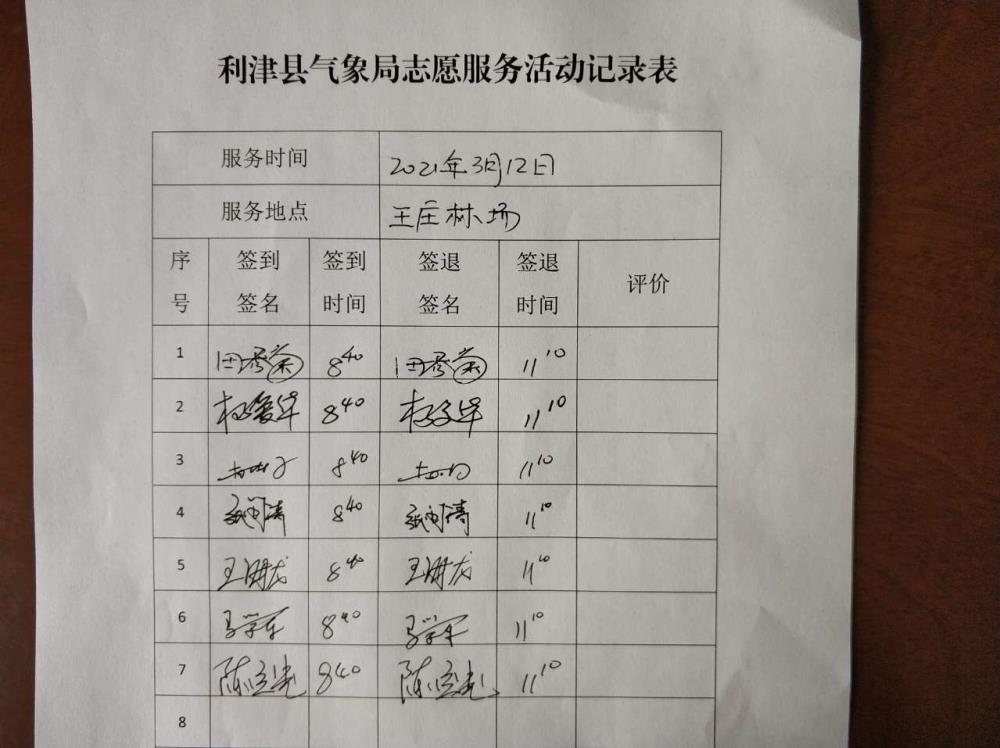 利津县气象局志愿服务活动记录表
服务时间 2021年3月12日
服务地点 王庄林场
序号 签到签名 签到时间 签退签名 签退时间 评价
1 田秀菊 8 40 田秀菊 11 10
2 8 40 11 10
3 8 40 11 10
4 8 40 11 10
5 王朋龙 8 40 王朋龙 11 10
6 马学军 8 40 马学军 11 10
7 8 40 11 10
8